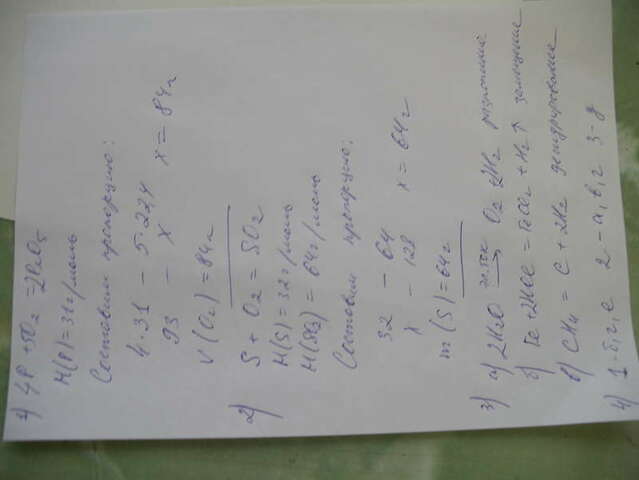 1) 4P + 5O2 = 2P2O5
M(P) = 31г/моль
Составим пропорцию:
4·31 - 5·22,4
93 - x x = 84л
V(O2) = 84л
2) S + O2 = SO2
M(S) = 32г/моль
M(SO2) = 64г/моль
Составим пропорцию:
32 - 64
x - 128 x = 64г
m(S) = 64г
3) а) 2H2O эл.ток → O2 + 2H2 разложение
б) Fe + 2HCl = FeCl2 + H2↑ замещение
в) CH4 = C + 2H2 дегидрирование
4) 1-б,г,е 2-а,в,г 3-д